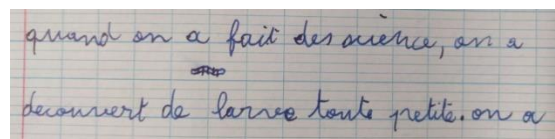 quand on a fait des sience, on a
decouvert de larve toute petite. on a